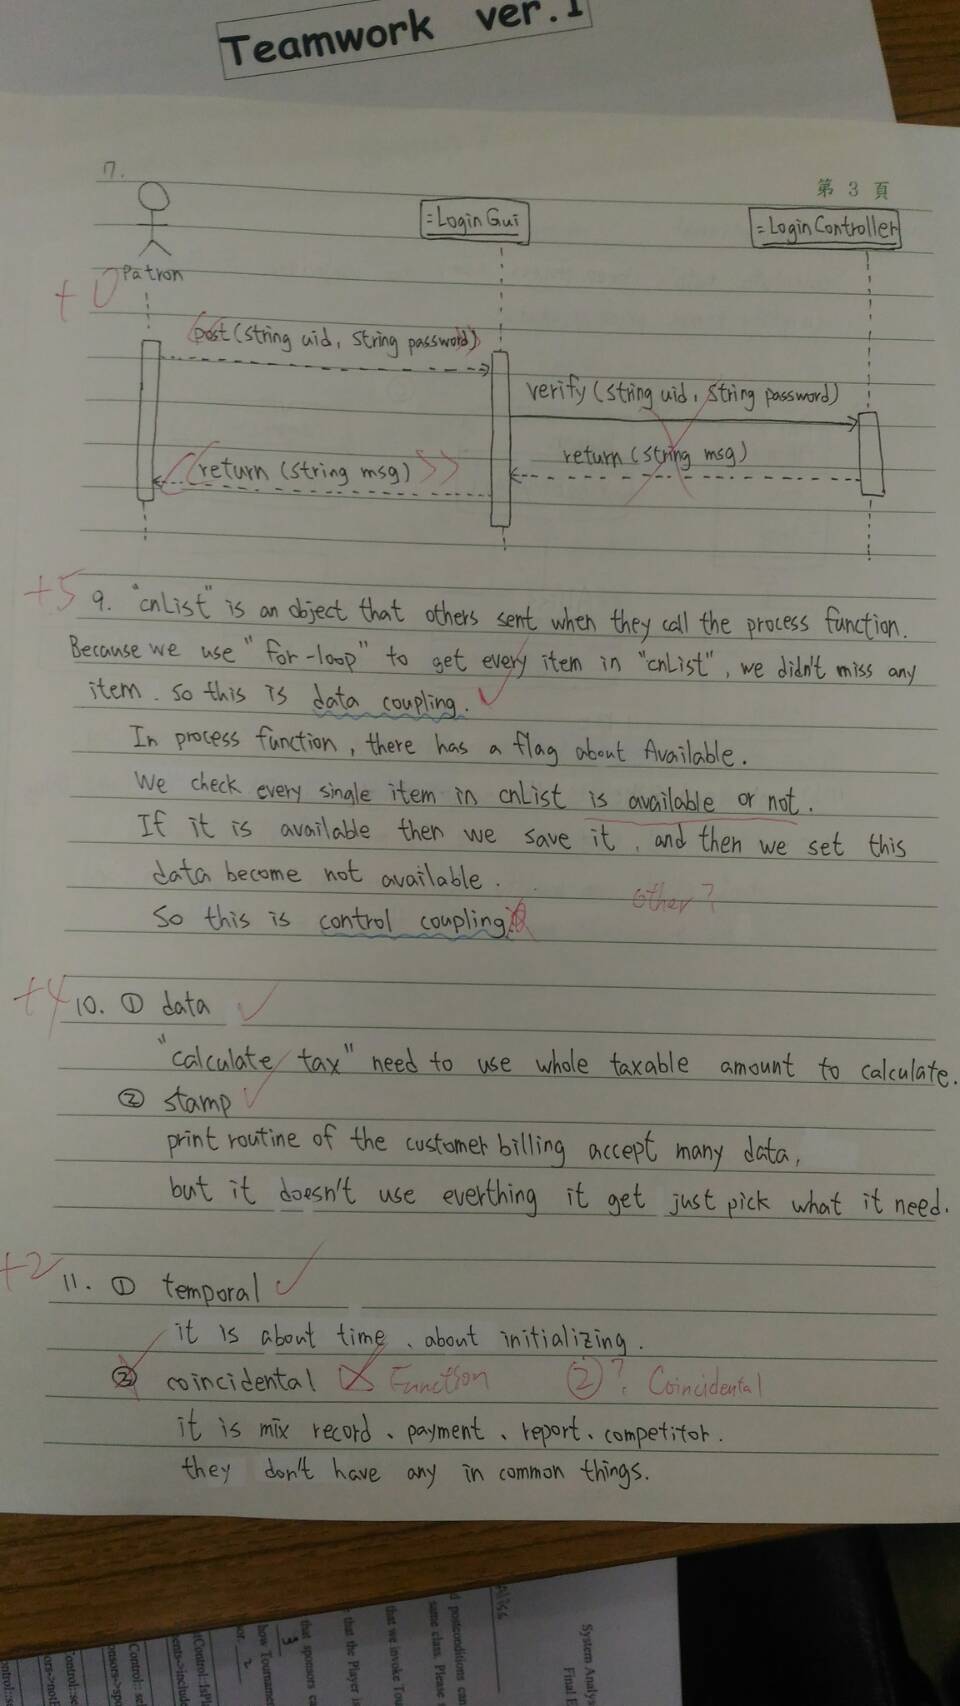 Teamwork ver.1
7.
第 3 頁
=LoginGui
=LoginController
Patron
+0
post(string uid, string password)
verify(string uid, string password)
return (string msg)
return (string msg)
+5
9. "cnList" is an object that others sent when they call the process function.
Because we use "for-loop" to get every item in "cnList", we didn't miss any
item. so this is data coupling.
In process function, there has a flag about Available.
We check every single item in cnList is available or not.
If it is available then we save it, and then we set this
data become not available.
other?
So this is control coupling.
+4
10. ① data
"calculate tax" need to use whole taxable amount to calculate.
② stamp
print routine of the customer billing accept many data,
but it doesn't use everthing it get just pick what it need.
+2
11. ① temporal
it is about time、about initializing.
② coincidental Function ②? Coincidental
it is mix record、payment、report、competitor.
they don't have any in common things.
System Analys
Final E
d postconditions can
same class. Please
that we invoke Tou
that the Player is
that sponsors ca
3
how Tourname
2